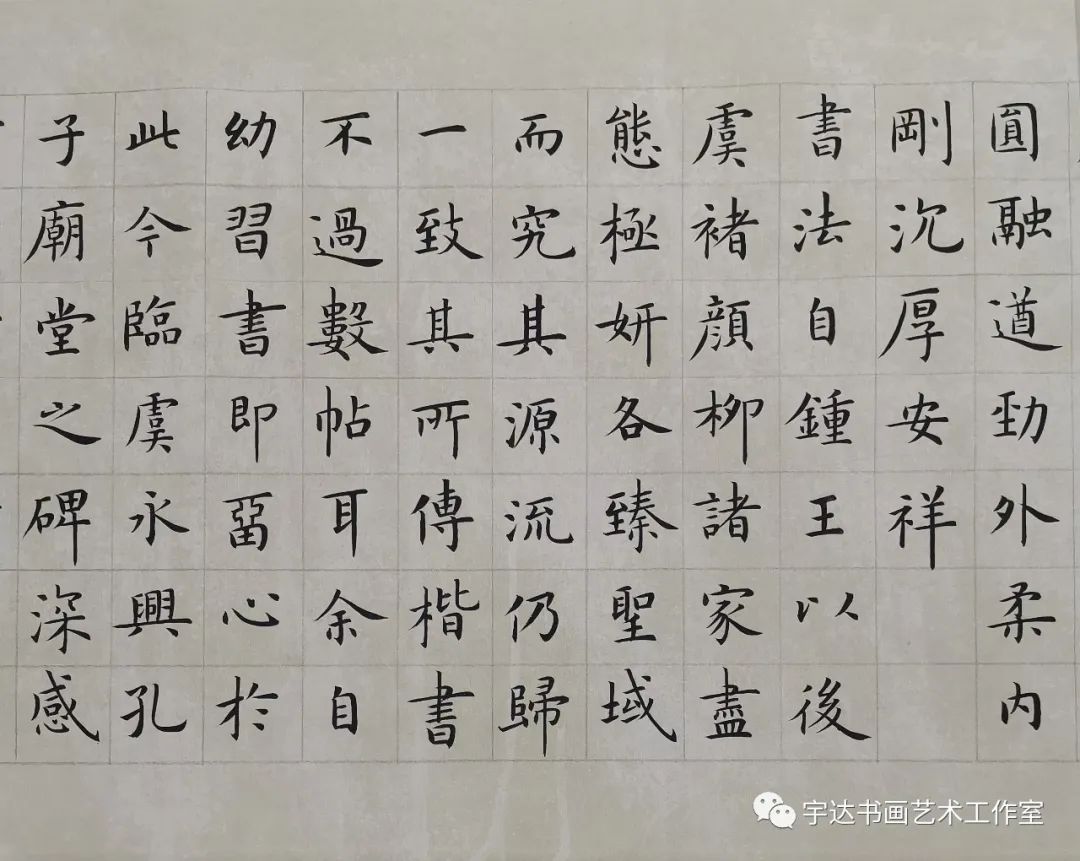 圓融遒勁外柔内
剛沉厚安祥
書法自鍾王以後
虞褚顏柳諸家盡
態極妍各臻聖域
而究其源流仍歸
一致其所傳楷書
不過數帖耳余自
幼習書即留心於
此今臨虞永興孔
子廟堂之碑深感
宇达书画艺术工作室